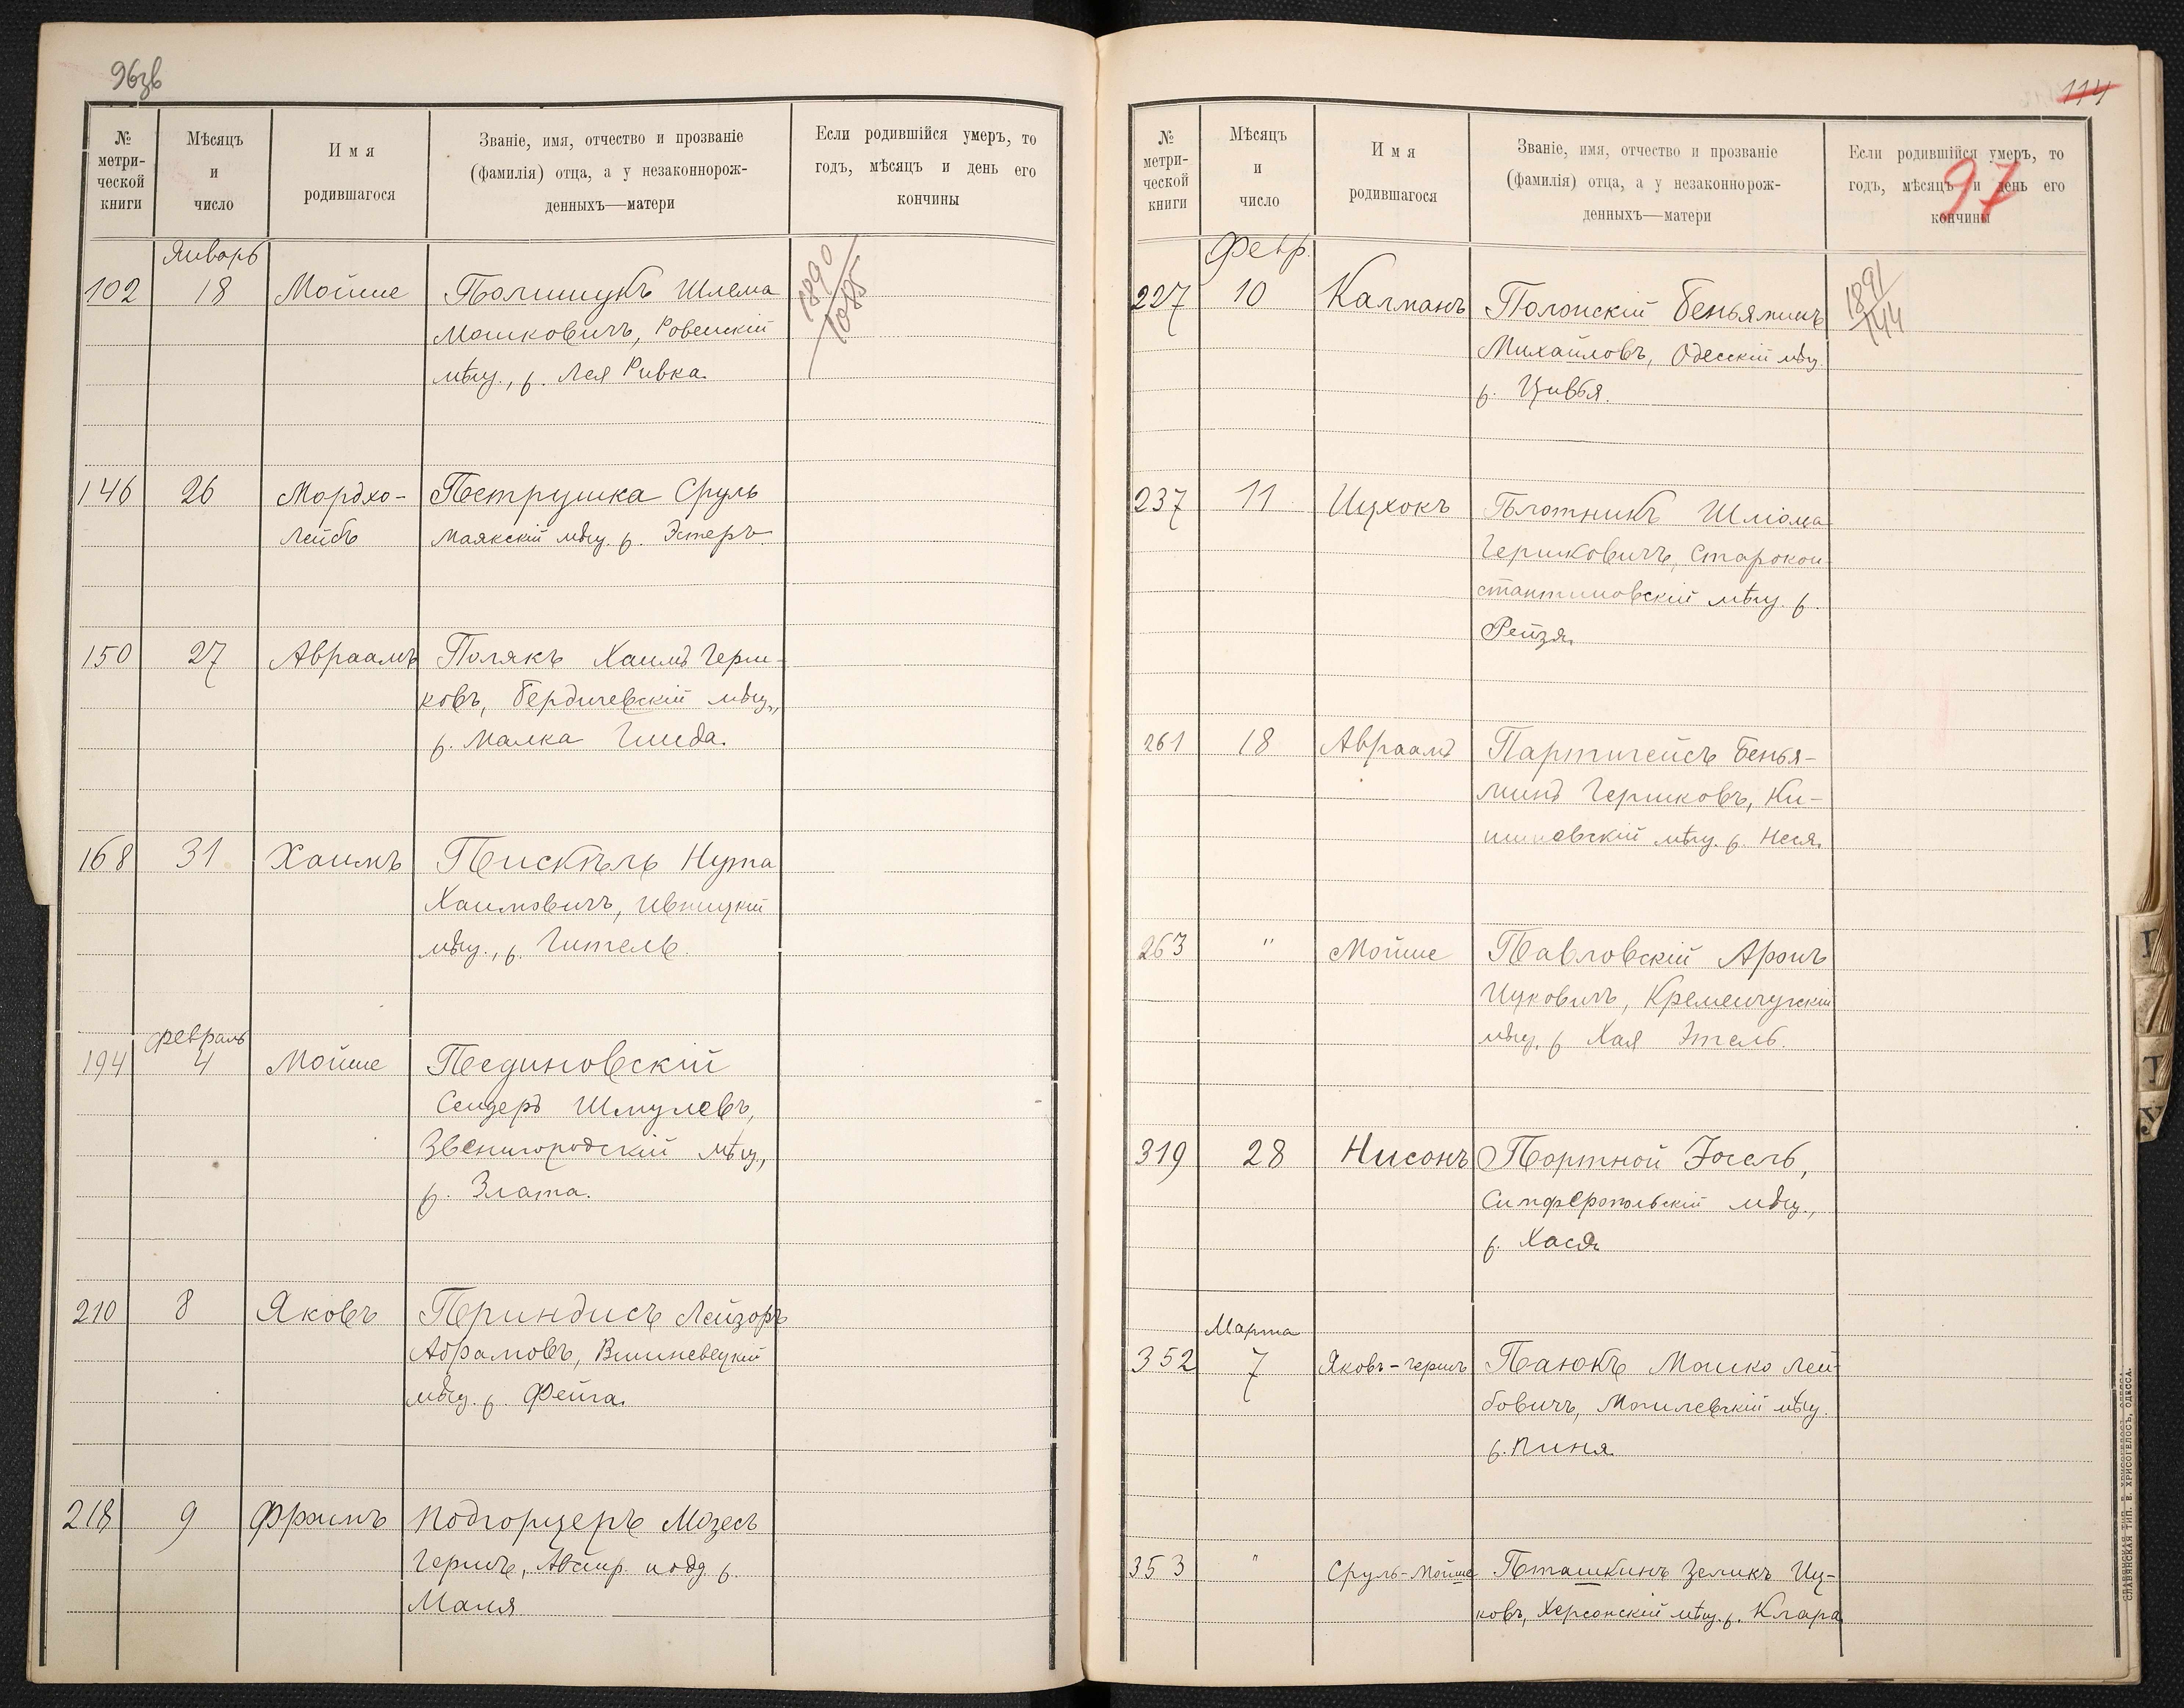 96зв
№ метри-ческой книги
Мѣсяцъ и число
Имя родившагося
Званіе, имя, отчество и прозваніе (фамилія) отца, а у незаконнорож-денныхъ—матери
Если родившійся умеръ, то годъ, мѣсяцъ и день его кончины
Январь
102 18 Мойше Полищукъ Шлема 1890/1085
Мошковичъ, Ровенскій
мѣщ., р. Лея Ривка.
146 26 Мордхо- Петрушка Сруль
Лейбъ Маякскій мѣщ. р. Эстеръ.
150 27 Авраамъ Полякъ Хаимъ Герш-
ковъ, Бердичевскій мѣщ.,
р. Малка Гинда.
168 31 Хаимъ Пискѣль Нута
Хаимовичъ, Ивницкій
мѣщ., р. Гитель.
Февраль
194 4 Мойше Пединовскій
Сендеръ Шмулевъ,
Звенигородскій мѣщ.,
р. Злата.
210 8 Яковъ Приндисъ Лейзоръ
Абрамовъ, Вишневецкій
мѣщ. р. Фейга.
218 9 Фроимъ Подгорцеръ Мозесъ
Гершъ, Австр. подд. р.
Маня
114
97
№ метри-ческой книги
Мѣсяцъ и число
Имя родившагося
Званіе, имя, отчество и прозваніе (фамилія) отца, а у незаконнорож-денныхъ—матери
Если родившійся умеръ, то годъ, мѣсяцъ и день его кончины
Февр.
227 10 Калманъ Полонскій Беньяминъ 1891/144
Михайловъ, Одесскій мѣщ.
р. Цивья.
237 11 Ицхокъ Плотникъ Шліома
Гершковичъ, Старокон
стантиновскій мѣщ. р.
Рейзя.
261 18 Авраамъ Партигейсъ Бенья-
минъ Гершковъ, Ки-
шиневскій мѣщ. р. Неся.
263 " Мойше Павловскій Аронъ
Ицковичъ, Кременчугскій
мѣщ. р. Хая Этель.
319 28 Нисонъ Портной Іосель,
Симферопольскій мѣщ.,
р. Хася.
Марта
352 7 Яковъ-Гершъ Паюкъ Мошко Лей-
бовичъ, Могилевскій мѣщ.
р. Пиня.
353 " Сруль-Мойше Пташкинъ Зеликъ Иц-
ковъ, Херсонскій мѣщ. р. Клара
Т
У
СЛАВЯНСКАЯ ТИП. Е. ХРИСОГЕЛОСЪ, ОДЕССА.